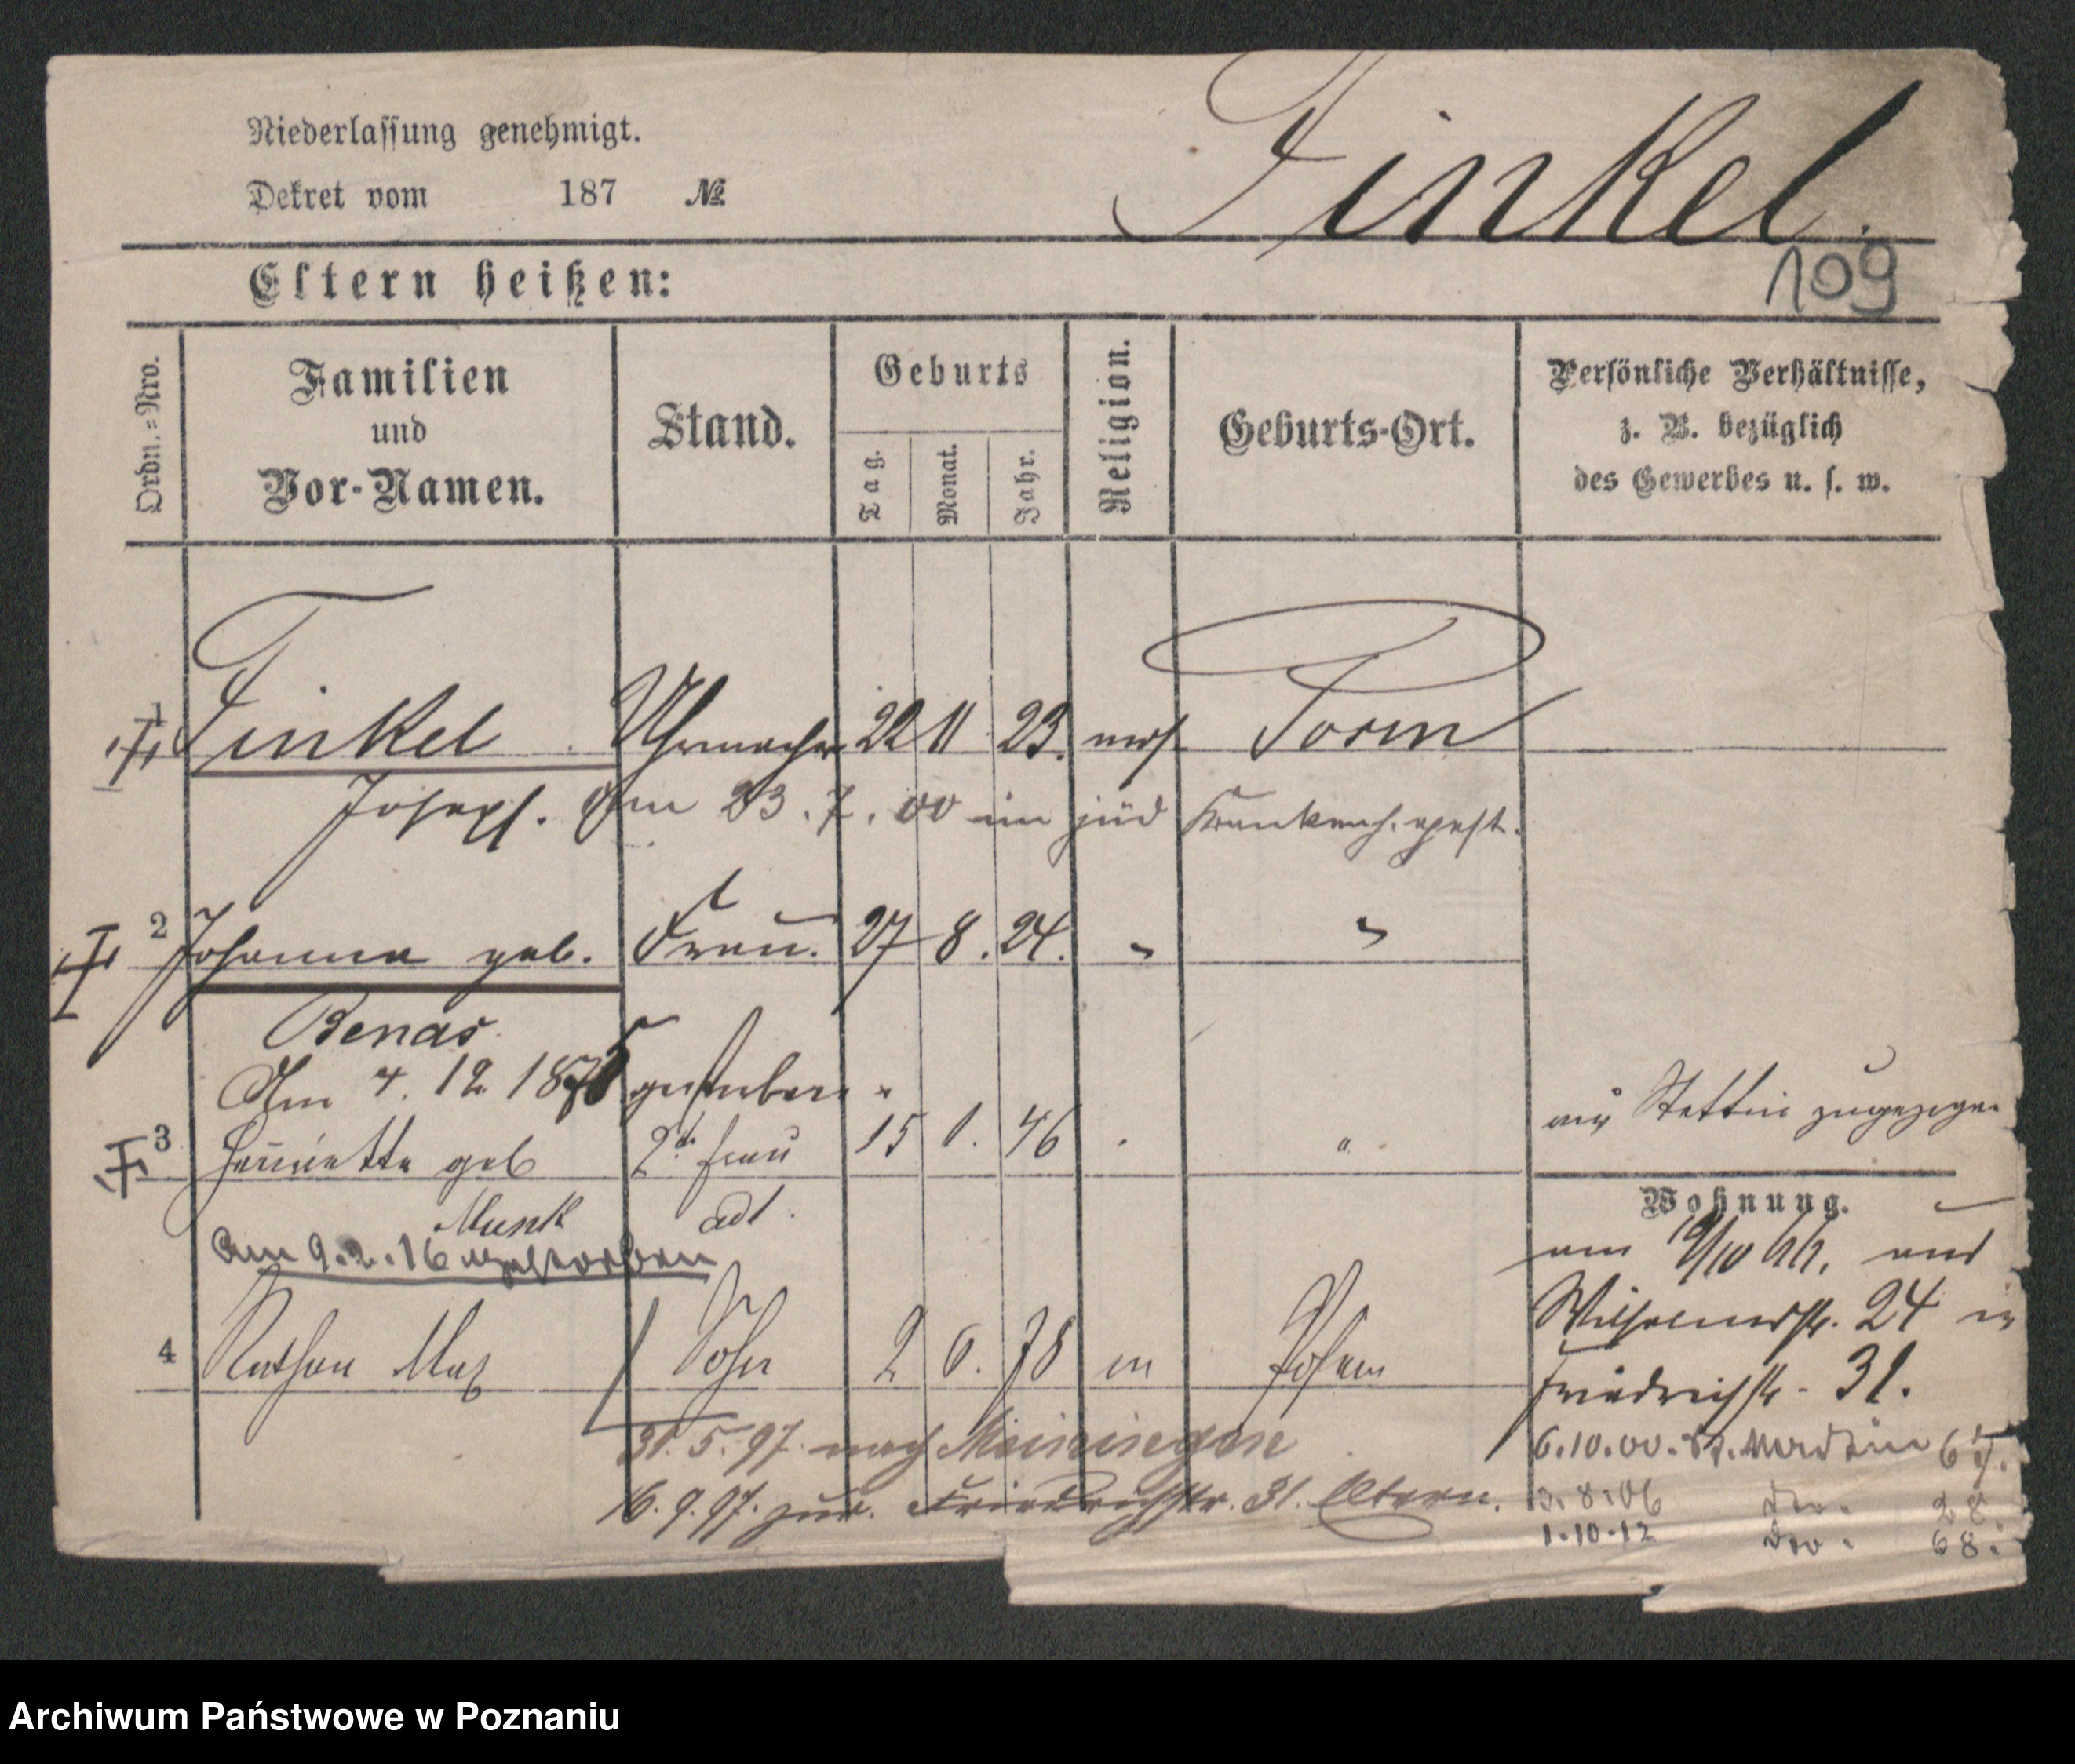 Niederlassung genehmigt.
Dekret vom 187 №
Finkel.
109
Eltern heißen:
Ordn.=Nro.
Familien
und
Vor-Namen.
Stand.
Geburts
Tag.
Monat.
Jahr.
Religion.
Geburts-Ort.
Persönliche Verhältnisse,
z. B. bezüglich
des Gewerbes u. s. w.
1 Finkel Uhrmacher 22 11 23. mos Posen
Joseph. Am 23.7.00 im jüd Krankenh. gest.
2 Johanna geb. Frau. 27 8. 24. " "
Benas
Am 4. 12 187 gestorben.
3 Henriette geb 2t. Frau 15 1. 46 " aus Stettin zugezogen
Munk
Wohnung.
am 9.2.16 gestorben
Wilhelmstr. 24 in
4 Nathan Max Sohn 2 6. 78 m Posen
Friedrichstr. 31.
31.5.97. nach Meiningen
6.10.00. St. Martin 67.
16.9.97. zur. Friedrichstr. 31. Eltern.
3.8.06 do. 28.
1.10.12 do. 68.
Archiwum Państwowe w Poznaniu